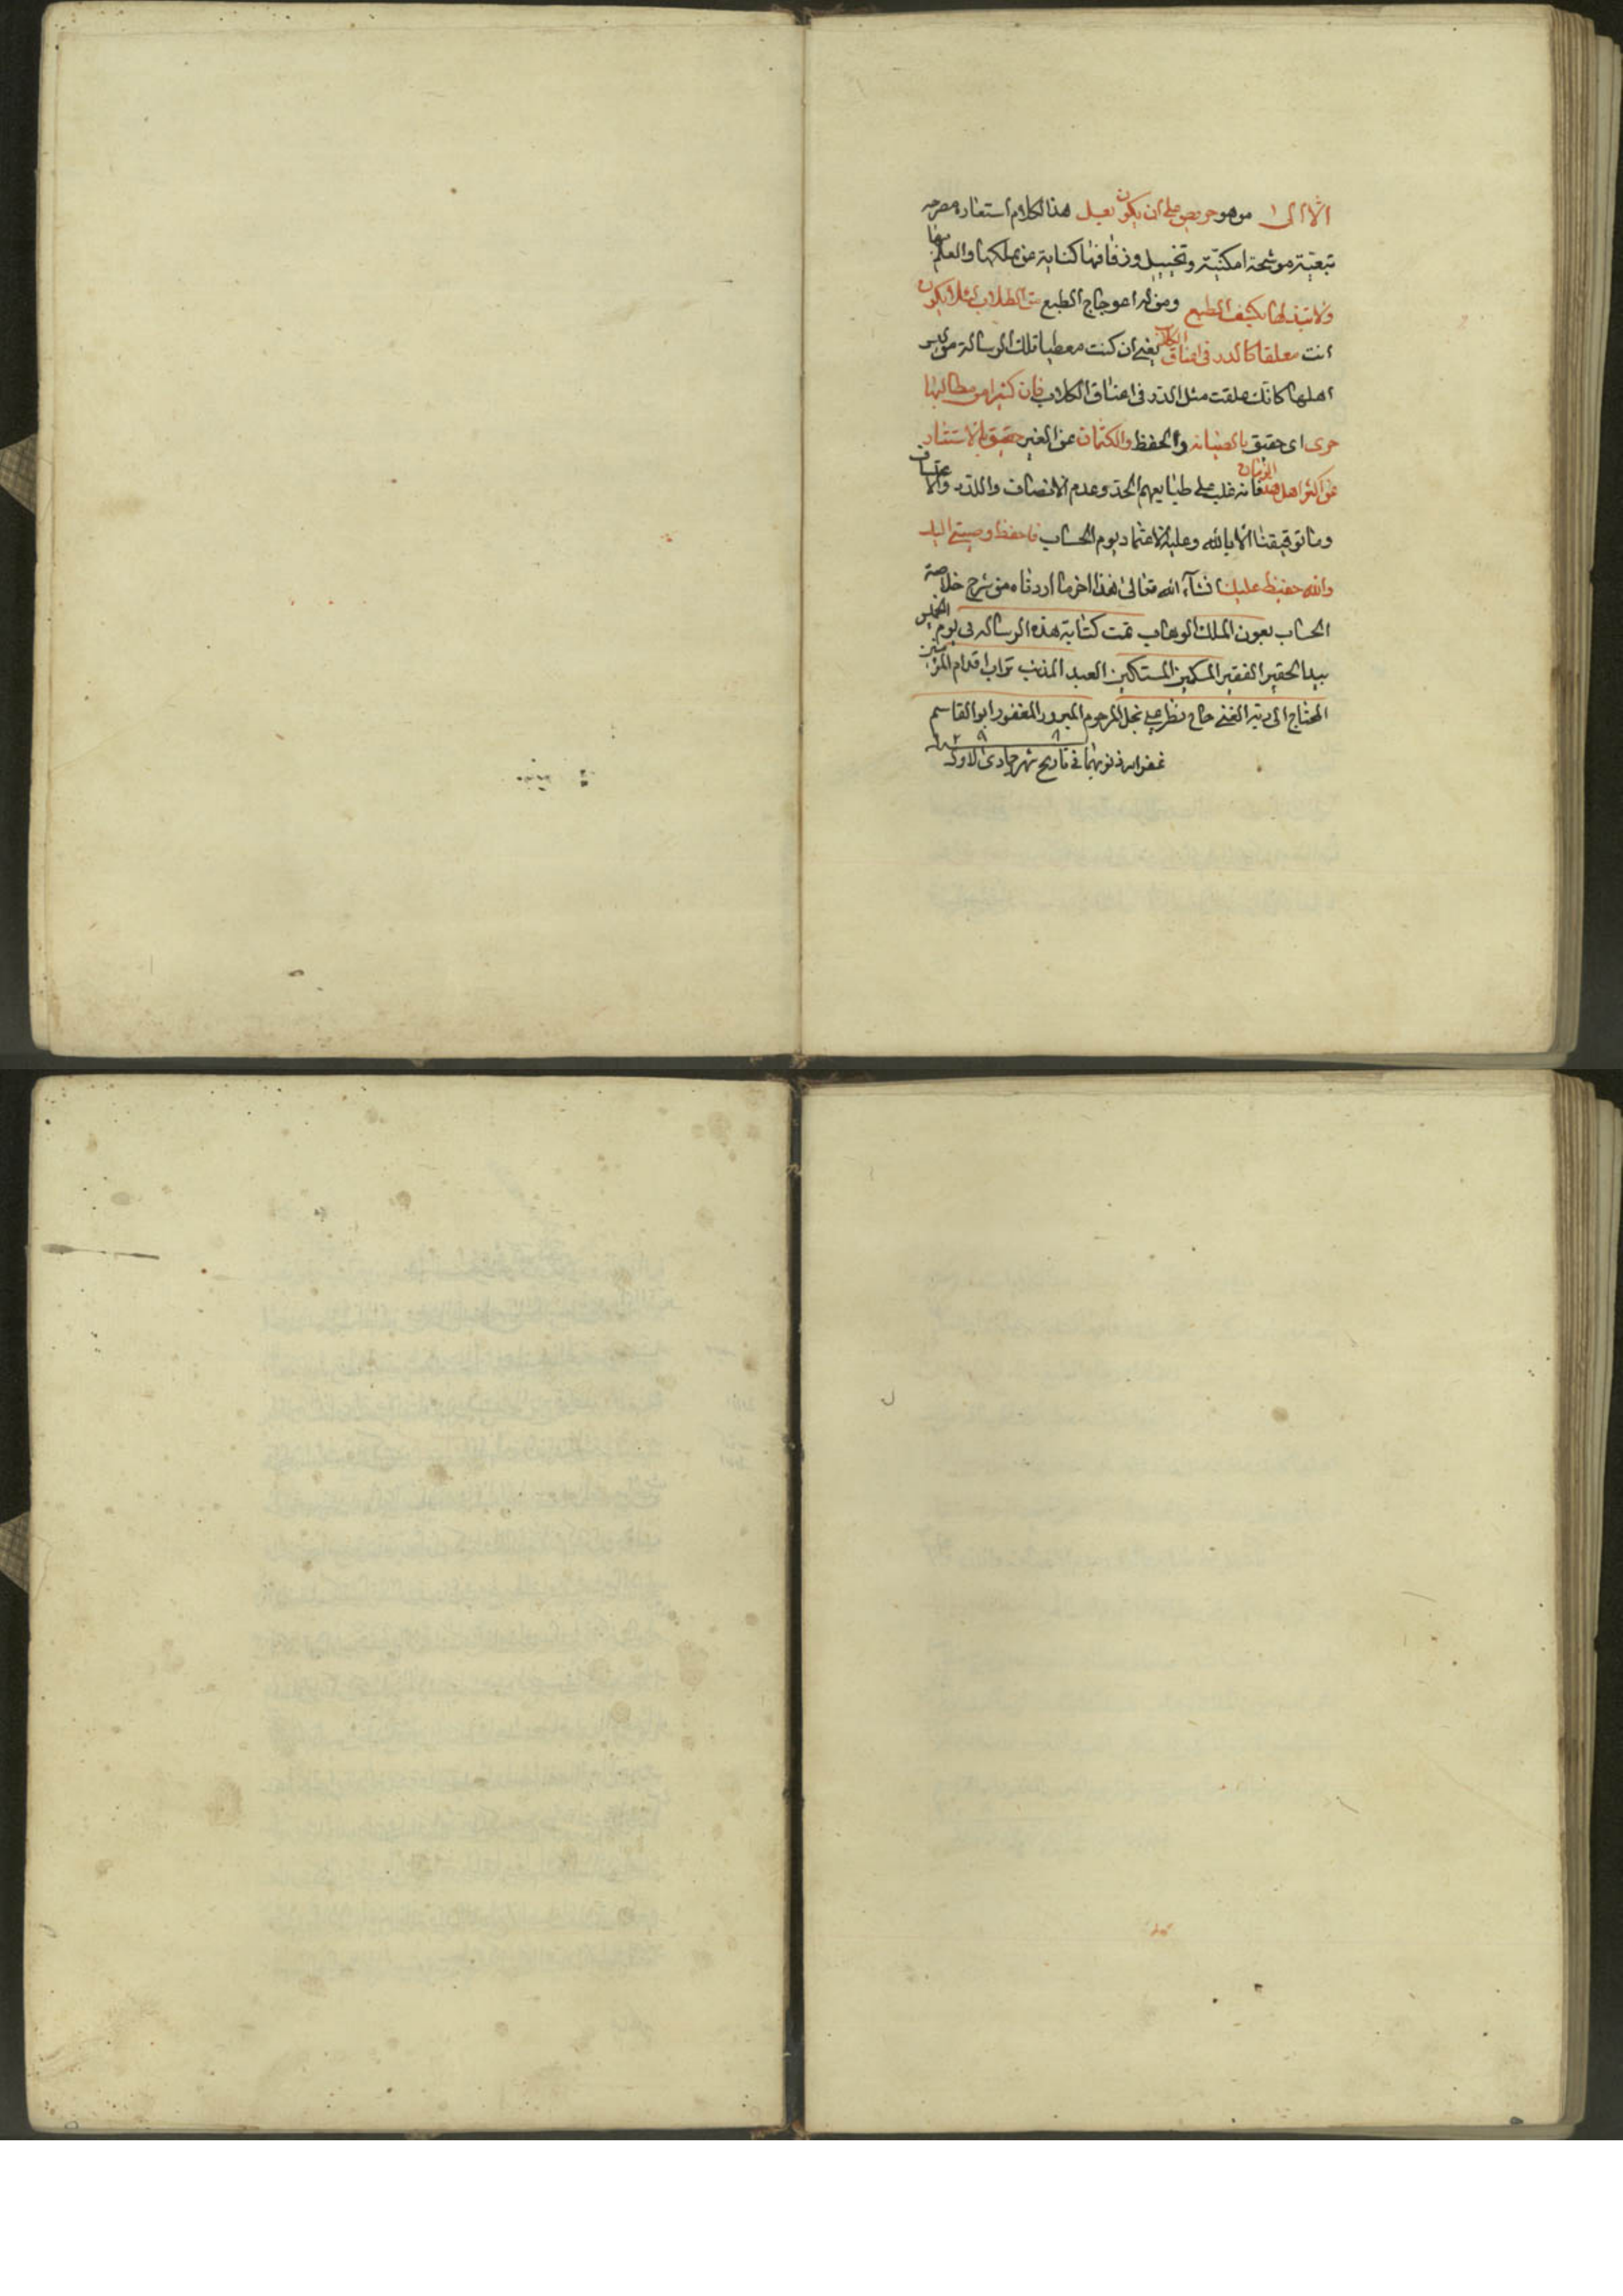 الا الى من هو حريص على ان يكون بعل هذا الكلام استعارة مصرحه
تبعيته موشحة امكنية وتخييل وزفافها كناية عن تملكها والعلم بها
ولا تبذلها لكثيف الطبع ومن له اعوجاج الطبع من الطلاب لئلا يكون
انت معلقا كالدرر فى اعناق الكلاب يعنى ان كنت معطيا تلك الرسالة من ليس
اهلها كانك علقت مثل الدرر فى اعناق الكلاب فان كثيرا من مطالبها
حرى اى حقيق بالصيانه والحفظ والكتمان عن الغير حقيق بالاستتار
عن اكثر اهل هذا الزمان فانه غلب على طبايعهم الحد وعدم الانصاف واللدد والاعتساف
وما توفيقنا الا بالله وعليه الاعتماد يوم الحساب فاحفظ وصيتى اليك
والله حفيظ عليك انشآء الله تعالى هذا اخر ما اردناه من شرح خلاصة
الحساب بعون الملك الوهاب تمت كتابة هذه الرساله فى يوم الخميس
بيد الحقير الفقير المسكين المستكين العبد المذنب تراب اقدام المؤمنين
المحتاج الى ربه الغنى حاج نظر على نجل المرحوم المبرور المغفور ابو القاسم
غفر الله ذنوبهما فى تاريخ شهر جمادى الاول